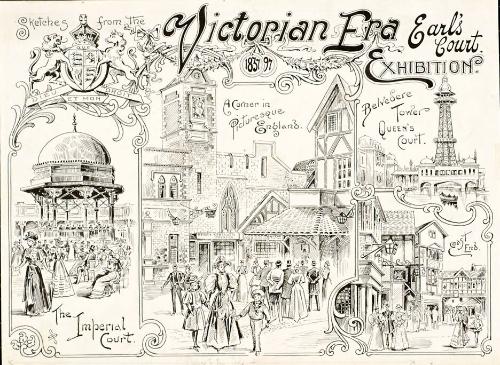 Sketches from the
Victorian Era
1837 97
Earl's
Court.
EXHIBITION.
ET MON
A Corner in
Picturesque
England.
Belvedere
Tower
QUEEN'S
COURT.
The
Imperial
Court.